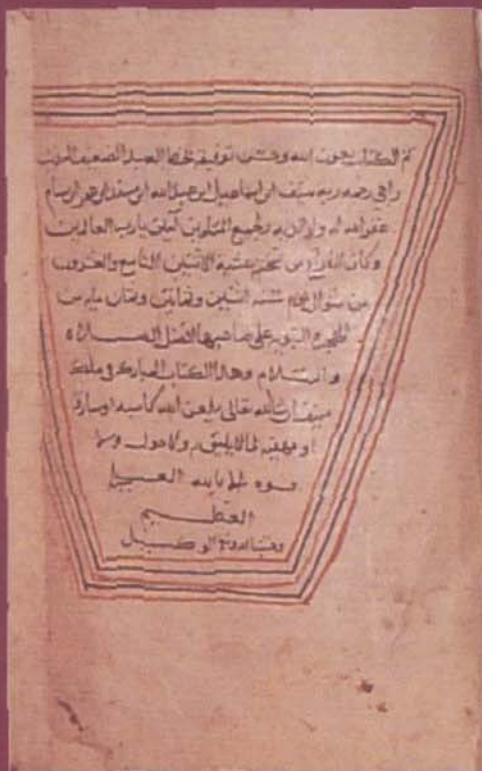 تم الكتاب بعون الله وحسن توفيقه بخط العبد الضعيف المذنب
راجي رحمة ربه سيف ابن اسماعيل ابن عبدالله ابن
غفر الله له ولوالديه ولجميع المسلمين آمين يارب العالمين
وكان الفراغ من عشية الاثنين التاسع والعشرون
من شوال سنة اثنين وثمانين وثمان مايه من
الهجرة النبويه على صاحبها افضل الصلاه
والسلام وهذا الكتاب المبارك في ملك
الله تعالى الله كاسبه اوسارق
او لما لا يليق ولا حول ولا
قوه الا بالله العلي
العظيم
ونعم الوكيل